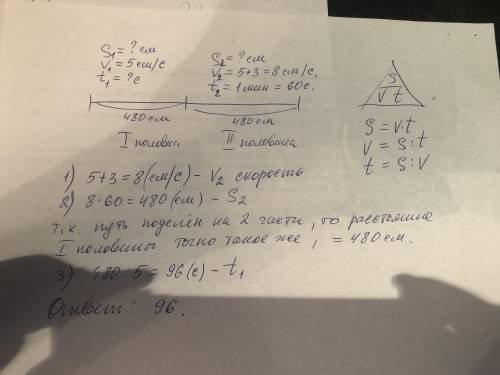 S₁ = ? см
V₁ = 5 см/с
t₁ = ? с
S₂ = ? см
V₂ = 5+3 = 8 см/с.
t₂ = 1 мин = 60 с.
480 см
480 см
I половин
II половина
S
V t
S = v·t
V = S : t
t = S : V
1) 5+3 = 8 (см/с) – V₂ скорость
2) 8·60 = 480 (см) – S₂
т.к. путь поделён на 2 части, то расстояние
I половины точно такое же, = 480 см.
3) 480 : 5 = 96 (с) – t₁
Ответ: 96.